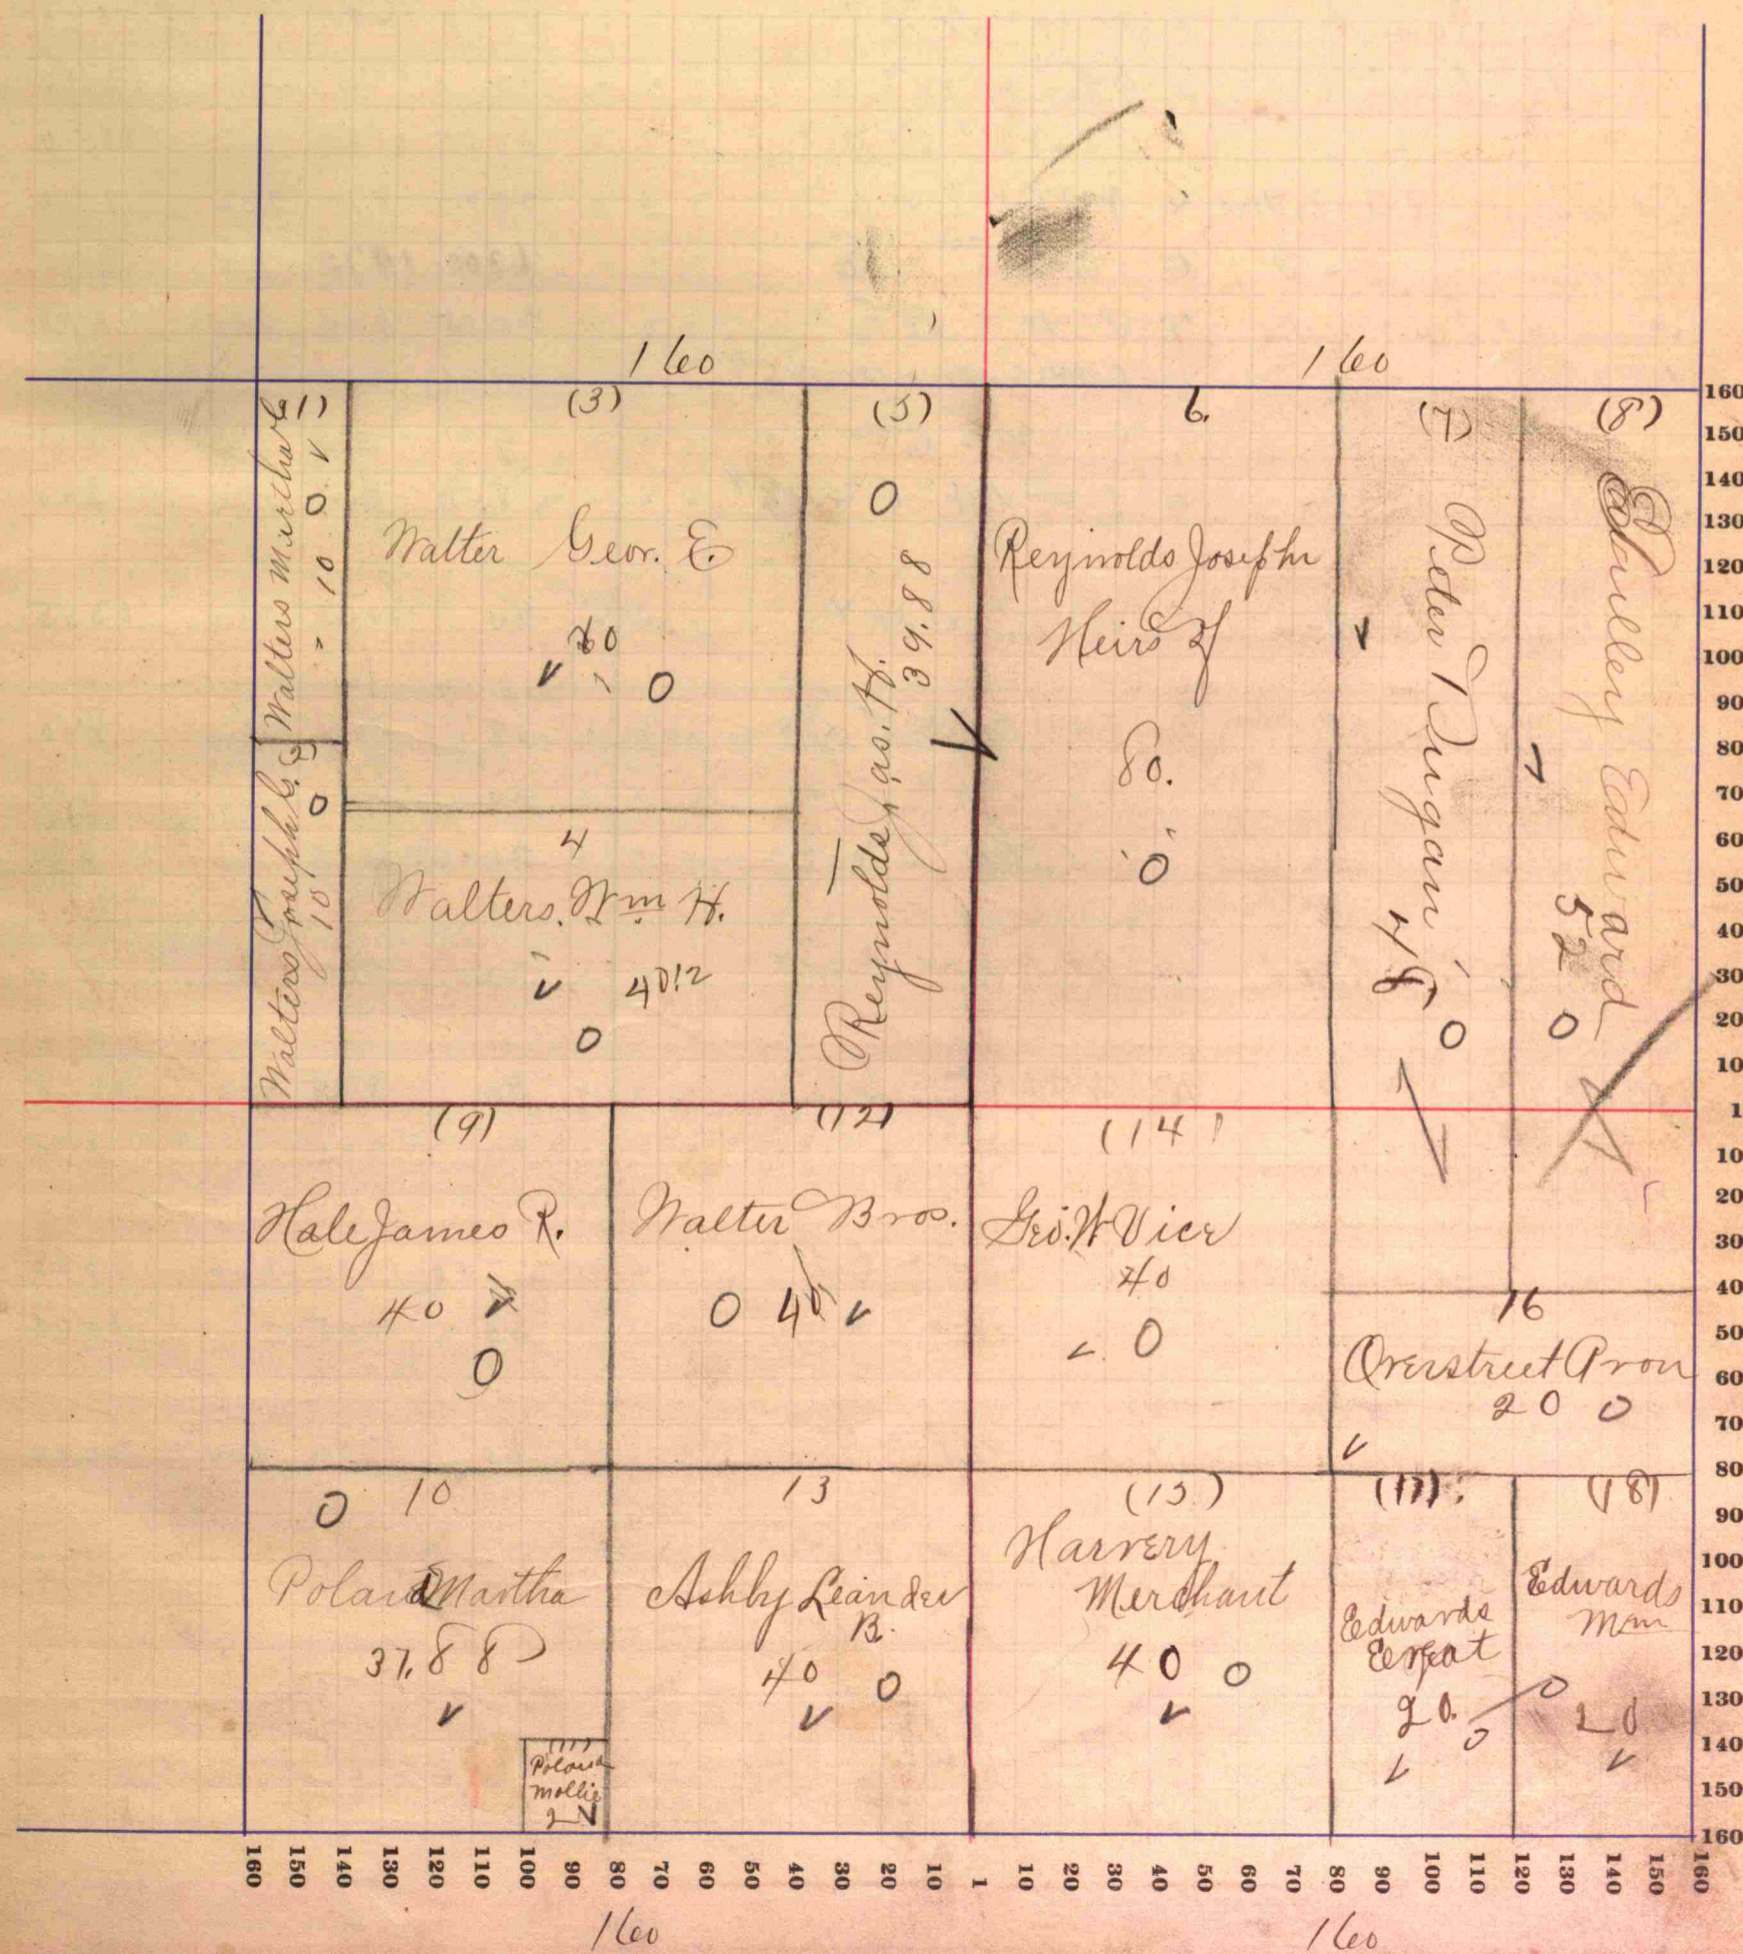 160
160
(1)
Walters Martha
10
(3)
Walter Geor. E.
0
(5)
Reynolds Jas. H.
39.88
0
6.
Reynolds Joseph
Heirs of
80.
0
(7)
Peter T Dugan
48
0
(8)
Edward
52
0
Walters Joseph
10
0
4
Walters. Wm H.
0
(9)
Hale James R.
40
0
(12)
Walter Bros.
0 40
(14)
Geo. W Vice
40
0
16
Overstreet Aron
20 0
10
0
Poland Martha
37.88
(11)
Poland
Mollie
2
13
Ashby Leander
B.
40 0
(15)
Harvery
Merchant
40 0
(17).
Edwards
20.
0
(18)
Edwards
Wm
20
0
160
150
140
130
120
110
100
90
80
70
60
50
40
30
20
10
1
10
20
30
40
50
60
70
80
90
100
110
120
130
140
150
160
160 150 140 130 120 110 100 90 80 70 60 50 40 30 20 10 1 10 20 30 40 50 60 70 80 90 100 110 120 130 140 150 160
160
160